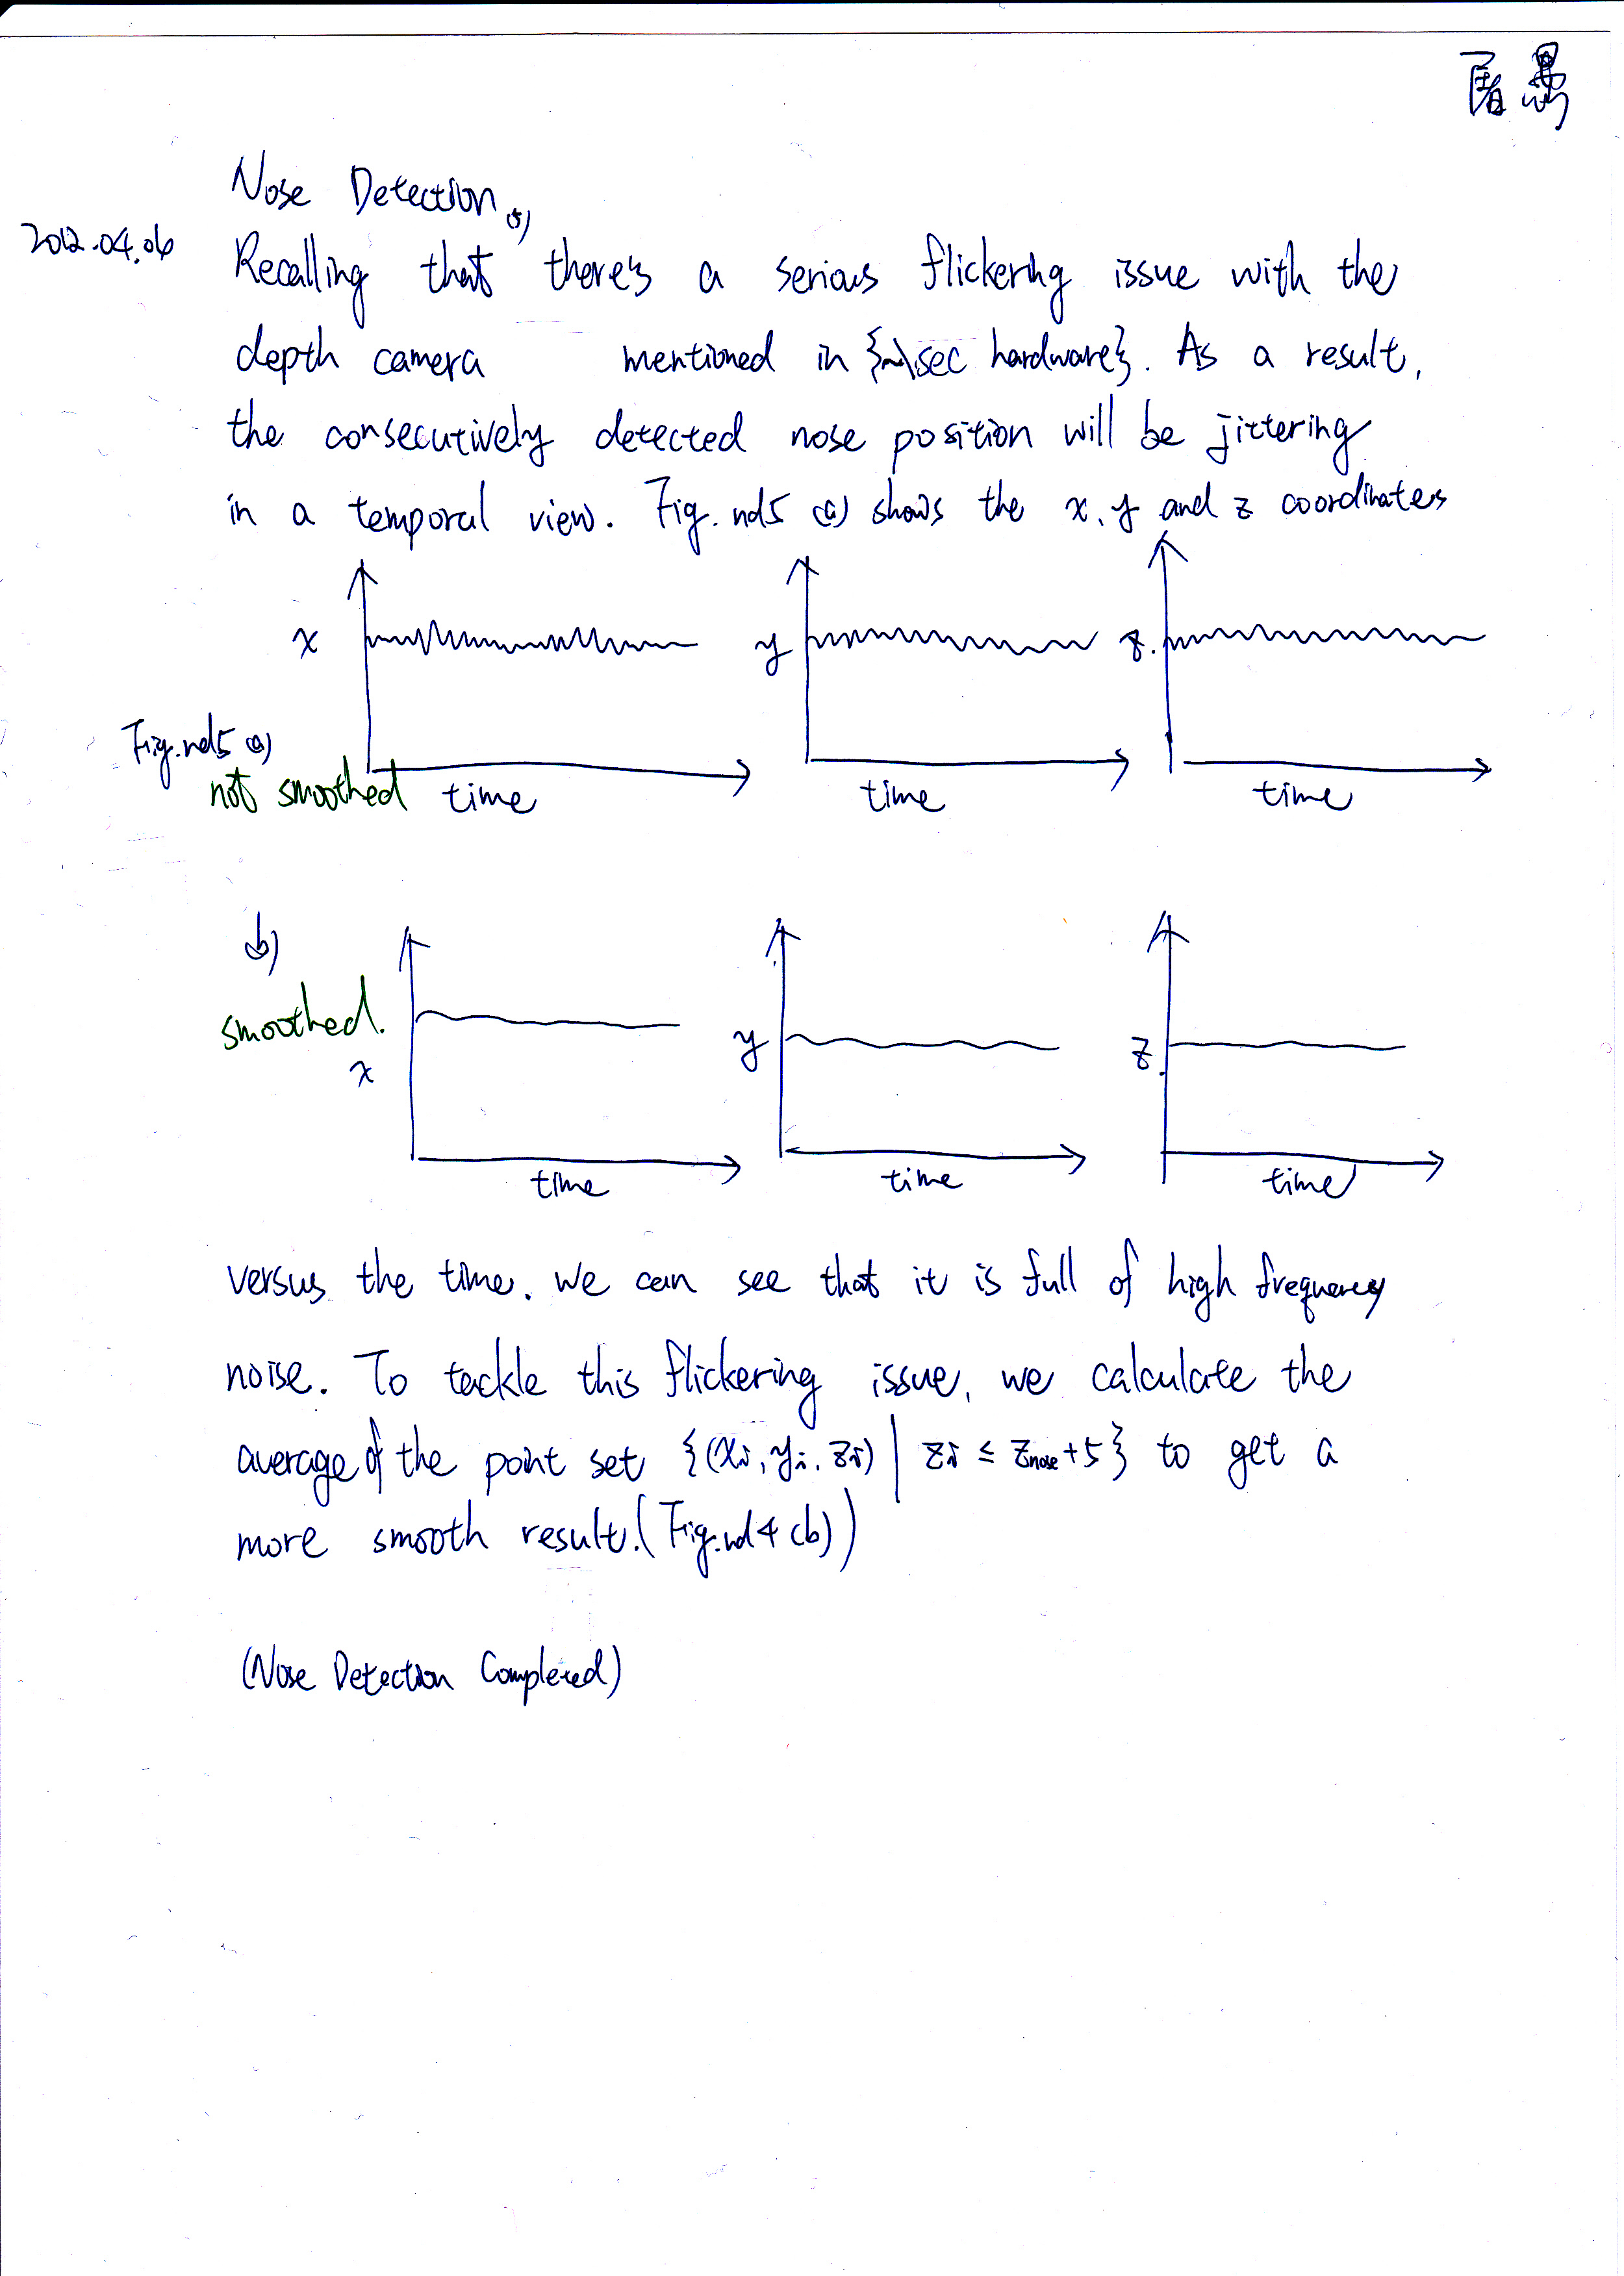 屠愚
Nose Detection (5)
2012.04.06
Recalling that there's a serious flickering issue with the
depth camera mentioned in {~\sec hardware}. As a result,
the consecutively detected nose position will be jittering
in a temporal view. Fig. nd5 (a) shows the x, y and z coordinates
x
y
z
Fig. nd5 (a)
not smoothed
time
time
time
(b)
smoothed.
x
y
z
time
time
time
versus the time. We can see that it is full of high frequency
noise. To tackle this flickering issue, we calculate the
average of the point set {(xi, yi, zi) | zi ≤ znose + 5} to get a
more smooth result. (Fig. nd4 (b))
(Nose Detection Completed)